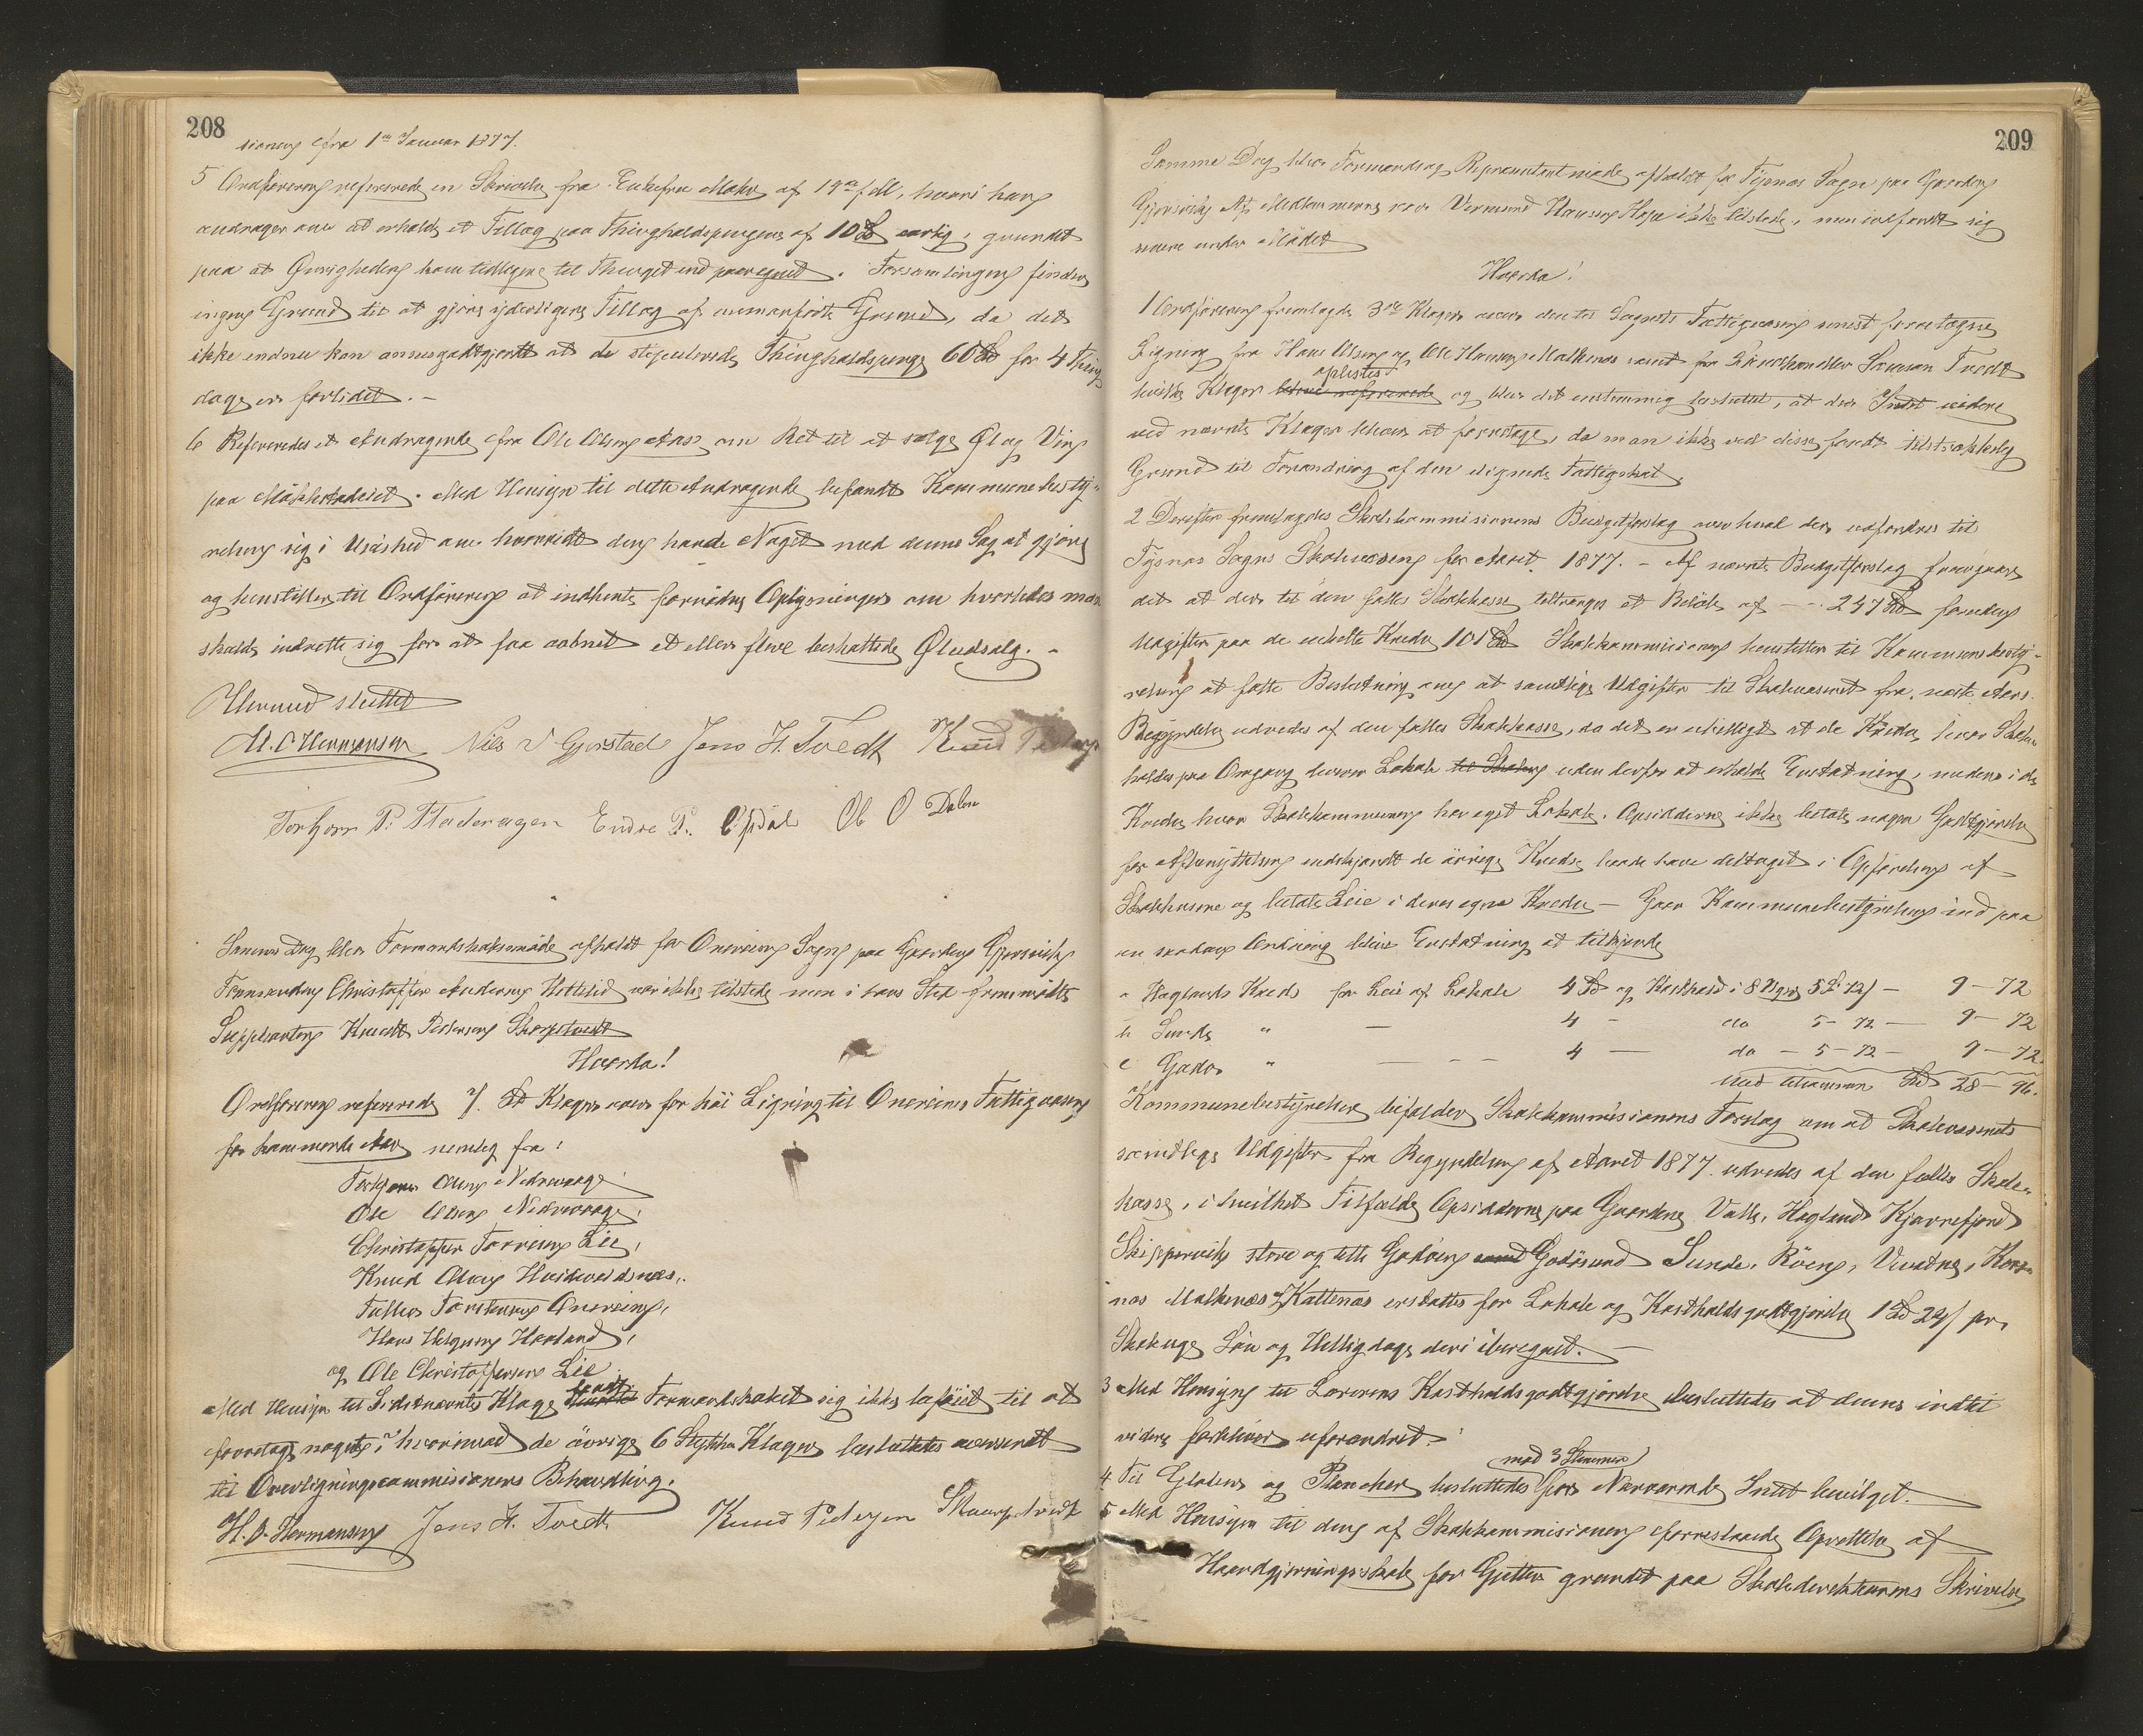 208
sionen fra 1ste Januar 1877.
5 Ordføreren refererede en Skrivelse fra Enkefru Mohr af 19de f. M., hvori hun
andrager om at erholde et Tillæg paa Thingholdspengene af 10 Spd aarlig, grundet
paa at Øvrigheden kom tidligere til Thinget end paaregnet. Forsamlingen finder
ingen Grund til at gjøre yderligere Tillæg af ommanførte Grund, da det
ikke endnu kan ansees godtgjort at de stipulerede Thingholdspenge 60 Spd for 4 Thing
dage er forlidet. -
6 Refereredes et Andragende fra Ole Olsen Aase om Ret til at sælge Øl og Vin
paa Møkkestadeiet. Med Hensyn til dette Andragende befandt Kommunebesty-
relsen sig i Uvished om hvorvidt den havde Noget med denne Sag at gjøre
og henstiller til Ordføreren at indhente fornødne Oplysninger om hvorledes man
skulde indrette sig for at faa aabnet et eller flere beskattede Øludsalg. -
Hermed sluttet
H. O. Hermansen Nils N Gjerstad Jens H. Tvedt Knud
Torbjørn P. Fladeragen Endre P. Opdal Ole O Dalen
Samme Dag blev Formandskabsmøde afholdt for Onareim Sogn paa Gaarden Gjersvik
Formanden Christoffer Andersen Hetlelid var ikke tilstede men i hans Sted fremmødte
Suppleanten Knudt Pedersen Skorpetvedt
Hvorda!
Ordføreren refererede 7 Klager over for høi Ligning til Onareims Fattigvæsen
for kommende Aar nemlig fra:
Torbjørn Olsen Nedrevaage
Ole Olsen Nedrevaage,
Christoffer Tørrisen Lie,
Knud Olsen Hvidevoldnæs,
Tollev Torstensen Onareim,
Hans Helgesen Hovland,
og Ole Christoffersen Lie.
Med Hensyn til Sidstnævntes Klage fandt Formandskabet sig ikke beføiet til at
foretage noget, hvorimod de øvrige 6 Stykker Klager besluttedes oversendt
til Overligningscommisionens Behandling.
H. O. Hermansen Jens H. Tvedt Knud Pedersen Skaarpetvedt
209
Samme Dag blev Formands og Repræsentantmøde afholdt for Tysnæs Sogn paa Gaarden
Gjersvik Af Medlemmerne var Vermund Hansen Heje ikke tilstede, men indfandt sig
senere under Mødet
Hvorda!
1 Ordføreren fremlagde 3de Klager over den til Sognets Fattigvæsen senest foretagne
Ligning fra Hans Olsen og Ole Hansen Malkenæs samt fra Landhandler Samson Tvedt
oplæstes
hvilke Klager blev refererede og blev det enstemmig besluttet, at der Intet videre
ved nævnte Klager bliver at foretage, da man ikke ved disse fandt tilstrækkelig
Grund til Forandring af den udlignede Fattigskat.
2 Derefter fremlagdes Skolekommisionens Budgetforslag over hvad der udfordres til
Tysnæs Sogns Skolevæsen for Aaret 1877. - Af nævnte Budgetforslag fremgaar
det at der til den fælles Skolekasse tiltrænges et Beløb af - - 247 Spd foruden
Udgifter paa de enkelte Kredse 101 Spd Skolekommisionen henstiller til Kommunebesty-
relsen at fatte Beslutning om at samtlige Udgifter til Skolevæsenet fra næste Aars
Begyndelse udredes af den fælles Skolekasse, da det er ubilligt at de Kredse, hvor Skolen
holdes paa Omgang leverer Lokale til Skolen uden derfor at erholde Erstatning, medens i de
Kredse hvor Skolekommunen har eget Lokale, Opsidderne ikke betale nogen Godtgjørelse
for Afbenyttelsen endskjøndt de øvrige Kredse baade have deltaget i Opførelsen af
Skolehusene og betale Leie i deres egne Kredse - Gaar Kommunebestyrelsen ind paa
en saadan Ordning bliver Erstatning at tilkjende
a Haglands Kreds for Leie af Lokale 4 Spd og Kosthold i 8 Uger 5 Spd 72 - 9 - 72
b Sunds " - 4 - do 5 - 72 - 9 - 72
c Godø " - - - 4 - do - 5 - 72 - 9 - 72
Tilsammen Spd 28 - 96.
Kommunebestyrelsen bifalder Skolekommisionens Forslag om at Skolevæsenets
samtlige Udgifter fra Begyndelsen af Aaret 1877 udredes af den fælles Skole-
kasse, i hvilket Tilfælde Opsidderne paa Gaardene Valle, Hagland Kjærrefjord
Skippervik store og lille Godøen samt Godøsund Sunde, Røen, Vevatne, Kors-
næs Malkenæs og Kattenæs erstattes for Lokale og Kostholdsgodtgjørelse 1 Spd 24 pr.
Skoleuge Søn og Helligdage deri iberegnet. -
3 Med Hensyn til Lærerens Kostholdsgodtgjørelse besluttedes at denne indtil
videre forbliver uforandret.
med 3 Stemmer
4 Til Globus og Plancher besluttedes for Nærværende Intet bevilget.
5 Med Hensyn til den af Skolekommisionen foreslaaede Oprettelse af
Haandgjerningsskole for Gutter grundet paa Skoledirekteurens Skrivelse